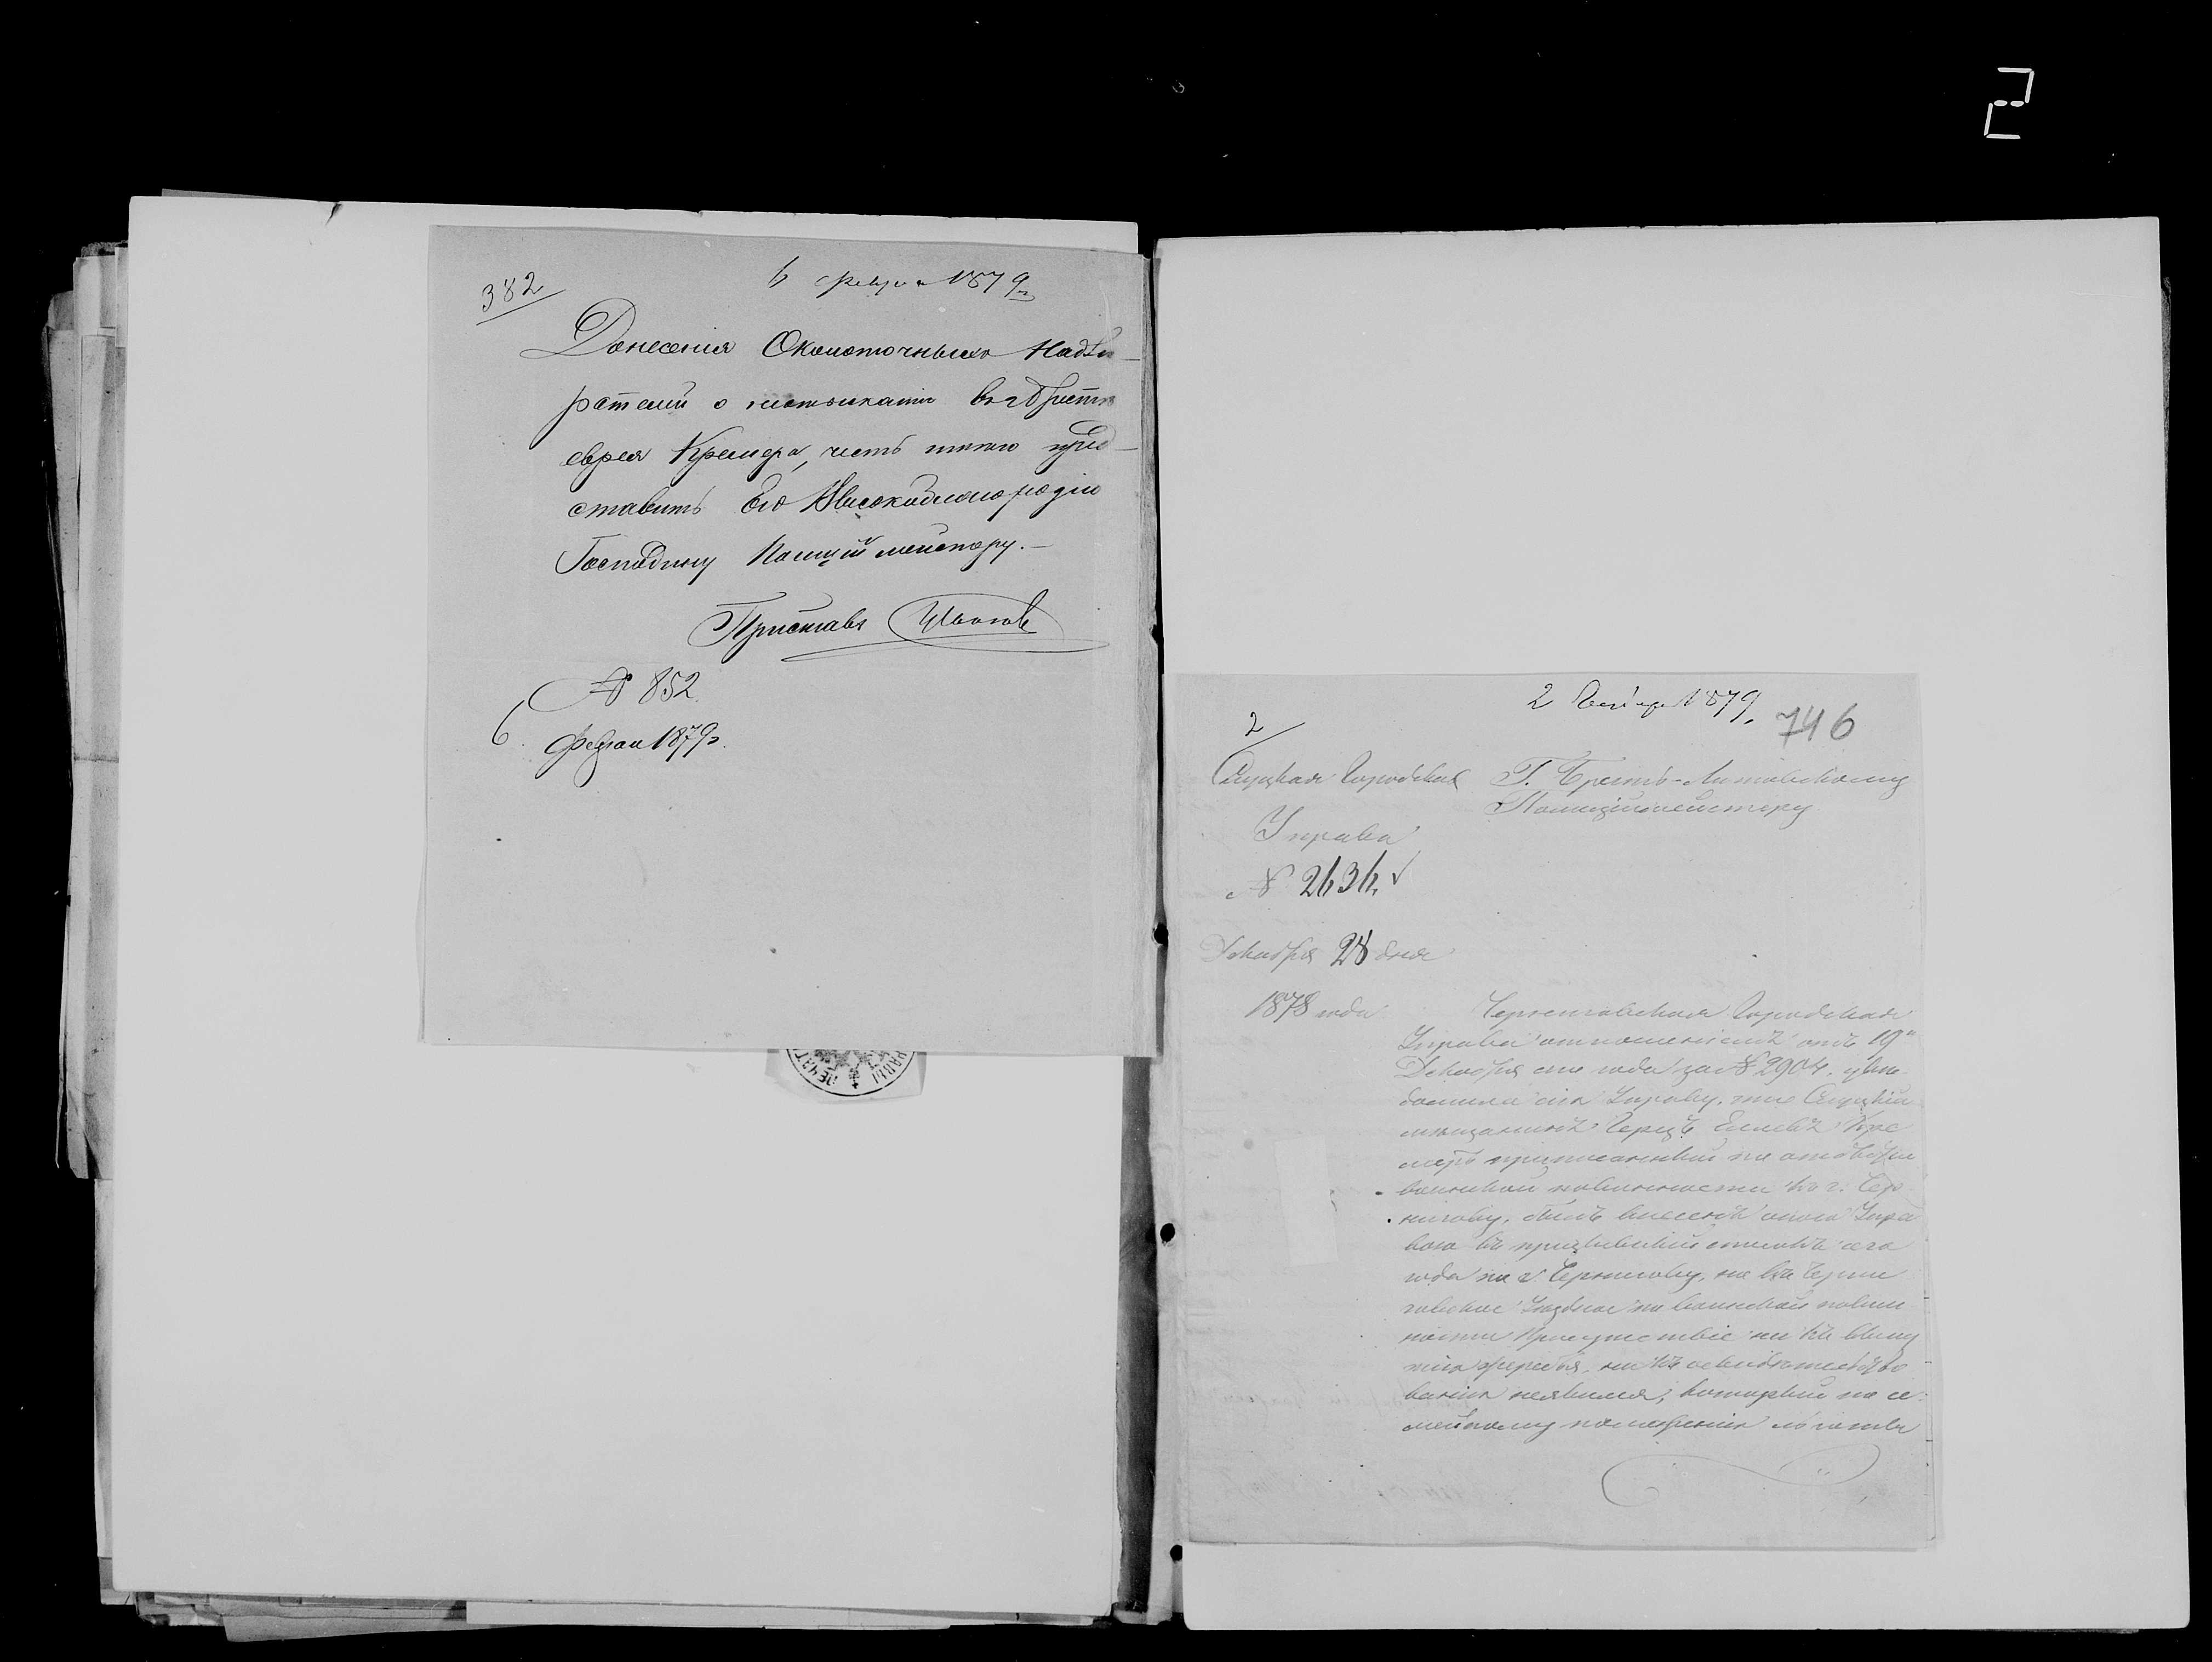 2
382
6 февра 1879 г
Донесенія Околоточныхъ Надзи-
рателей о неотысканіи въ г Брестѣ
еврея Кремера, честь имѣю пред-
ставить Его Высокоблагородію
Господину Полиціймейстеру.—
Приставъ
№ 852.
6. Февраля 1879 г.
ПЕЧАТЬ УПРАВЫ
2 Генвр 1879.
746
2
Слуцкая Городская
Управа
№ 2636.
Декабря 28 дня
1878 года
Г. Брестъ-Литовскому
Полиціймейстеру
Черниговская Городская
Управа отношеніемъ отъ 19
Декабря сего года за № 2904. увѣ-
домила сію Управу, что Слуцкій
мѣщанинъ Кре
меръ приписанный по отбыванію
воинской повинности къ г. Чер
нигову, былъ внесенъ оною Упра
вою въ призывный списокъ сего
года по г. Чернигову, но въ Черни
говское Уѣздное по воинской повин
ности Присутствіе ни къ выну
тію жеребья, ни къ освидѣтельство
ванію неявился; который по се-
мейному положенію льготы